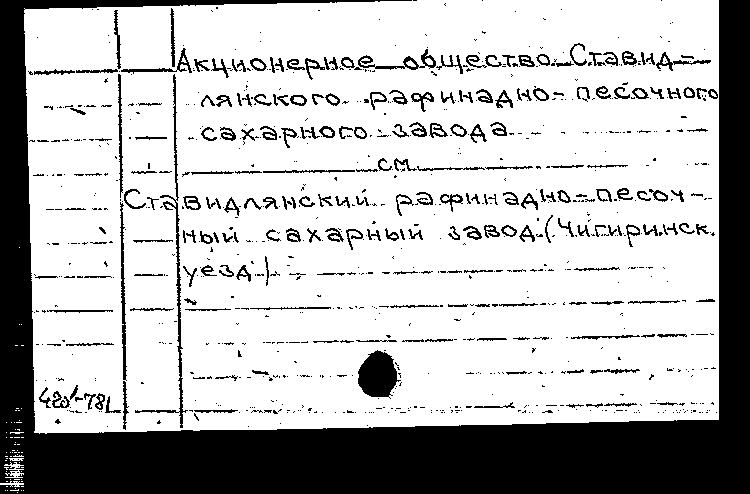 Акционерное общество Ставид-
лянского рафинадно-песочного
сахарного завода
см.
Ставидлянский рафинадно-песоч-
ный сахарный завод (Чигиринск.
уезд)